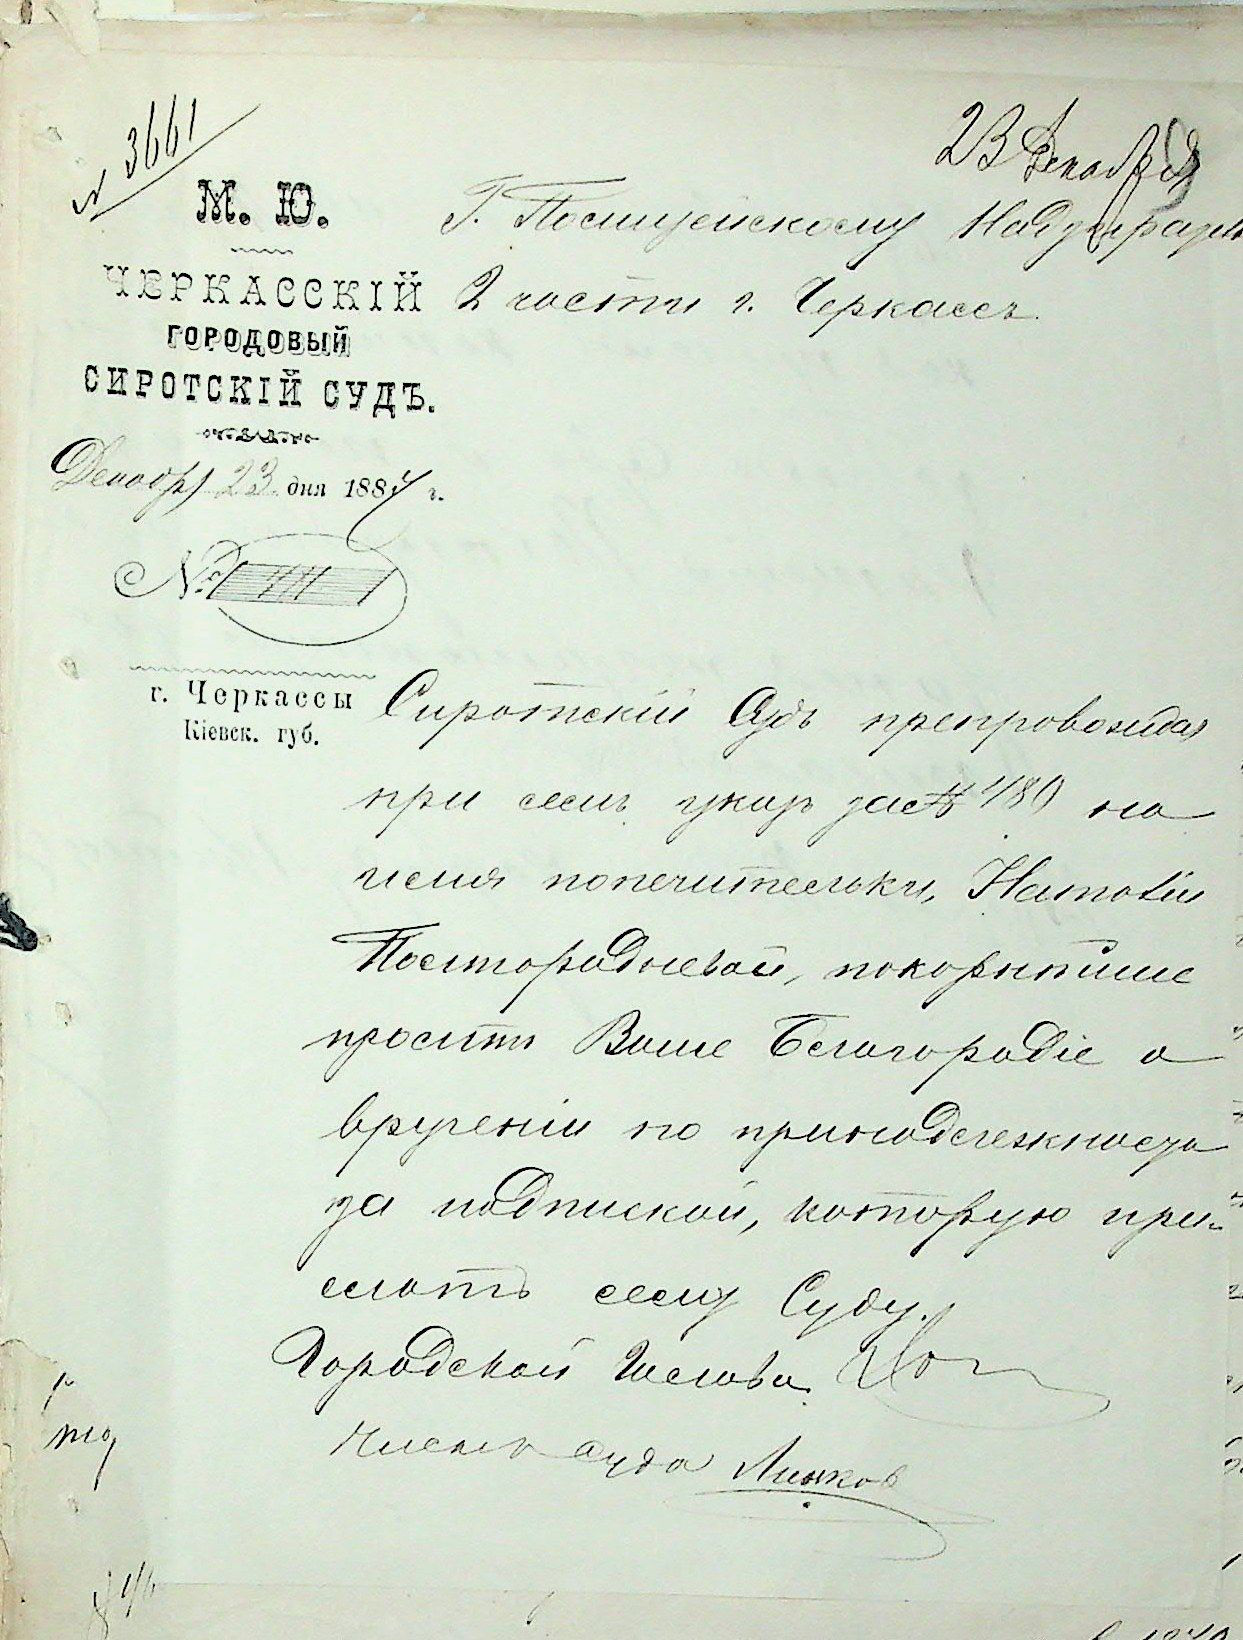 № 3661
23 Декабря
М. Ю.
ЧЕРКАССКІЙ
ГОРОДОВЫЙ
СИРОТСКІЙ СУДЪ.
Декабр 23 дня 1884 г.
№
г. Черкассы
Кіевск. губ.
Г. Полицейскому Надзирателю
2 части г. Черкассъ.
Сиротскій Судъ препровождая
при семъ указъ за № 480 на
имя попечительки, Наталіи
покорнѣйше
просить Ваше Благородіе о
врученіи по принадлежности
за подпиской, которую при-
слать сему Суду.
Городской Голова
Членъ Суда Линков